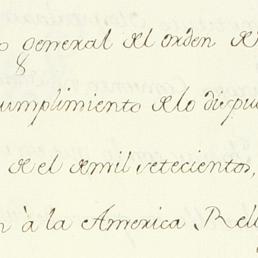 general del orden de
umplimiento de lo dispu
de el de mil setecientos,
n à la America Reli